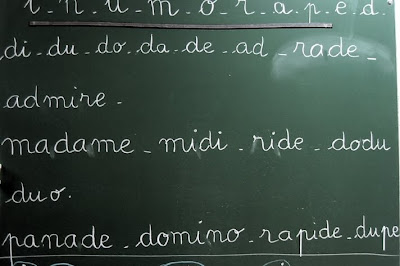 i_n_u_m_o_r_a_p_e_d.
di_du_do_da_de_ad_rade_
admire_
madame_midi_ride_dodu
duo.
panade_domino_rapide_dupe